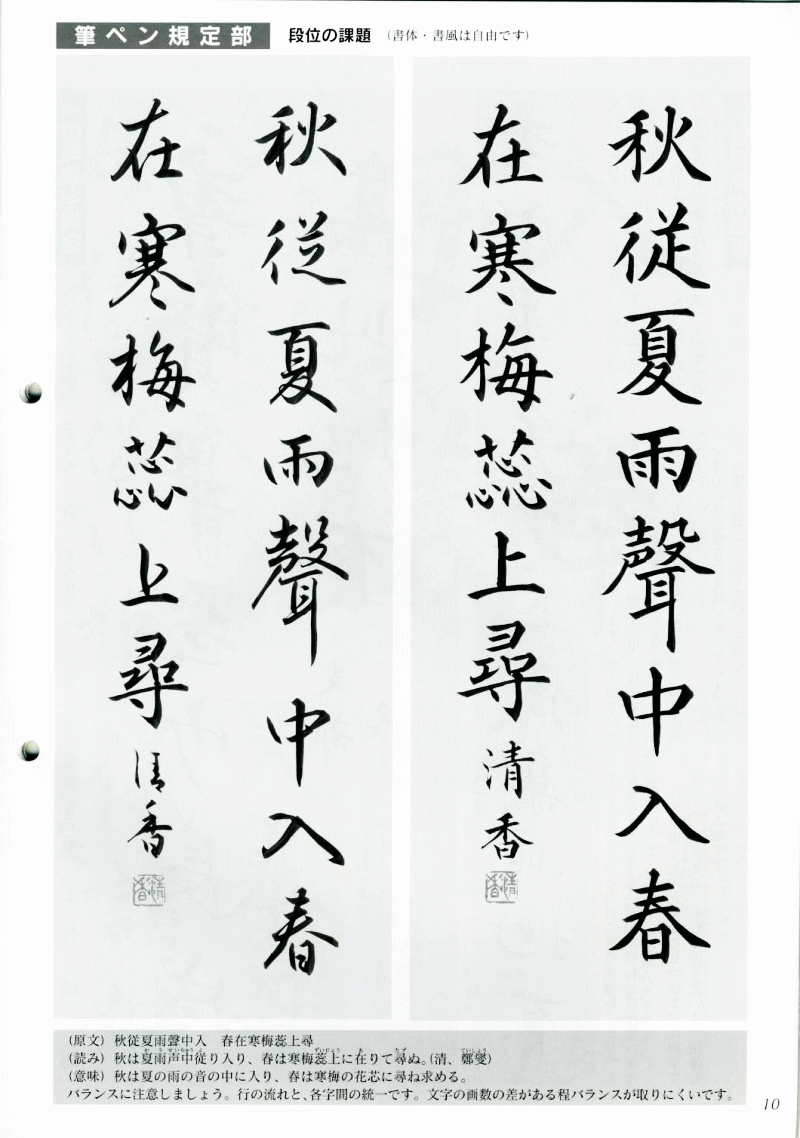 筆ペン規定部 段位の課題 (書体・書風は自由です)
秋従夏雨聲中入春
在寒梅蕊上尋 清香
秋従夏雨聲中入春
在寒梅蕊上尋 清香
(原文) 秋従夏雨聲中入 春在寒梅蕊上尋
(読み) 秋は夏雨声中従り入り、春は寒梅蕊上に在りて尋ぬ。(清、鄭燮)
(意味) 秋は夏の雨の音の中に入り、春は寒梅の花芯に尋ね求める。
バランスに注意しましょう。行の流れと、各字間の統一です。文字の画数の差がある程バランスが取りにくいです。
10